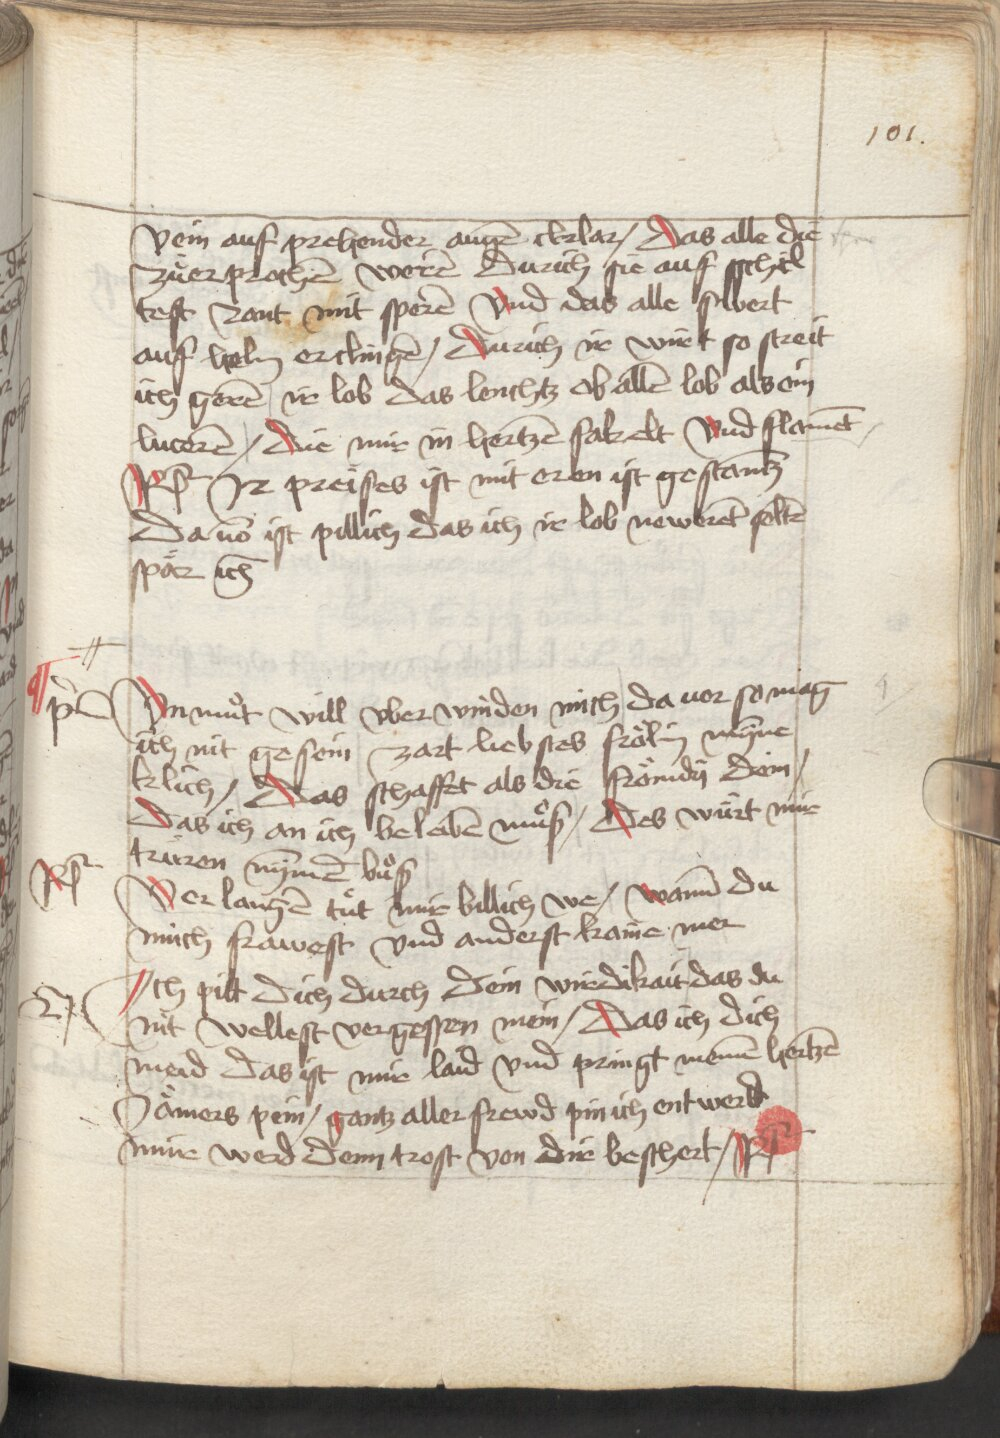 101.
vein auf prehender augē clar / Das alle die
zuͤerprochē werē Durich sie auf schil
test rant mit sperē Vnd das alle swert
auf helm erclingē / Durich ir wirt so streit
ich gerē ir lob das leuchtz ob allē lob als ein
lucerē / Die mir in hertzē fakelt Vnd flamēt
Rſ Ir preises ist mit eren ist gestantz
Da uō ist pillich das ich ir lob neweret seltē
spar ich
p Vnmuͦt will vber winden mich da uor so mag
ich nit gesein zart liebstes frölin mine
klich / Das schaffet als die frömdy dein /
Das ich an ich beleiben muͦß / Des wuͤrt mir
truren nymē buͦß
Rſ Verlangē tuͦt mir billich we / wann du
mich frawest vnd anderst kaine mer
2 Ich pitt dich durch dein wirdikait das du
nit wellest vergessen mein / Das ich dich
meid das ist mir laid vnd pringt meinē hertzē
Jamers pein / gantz aller frewd pin ich entwert
mir werd denn trost von dir beschert / Rſ